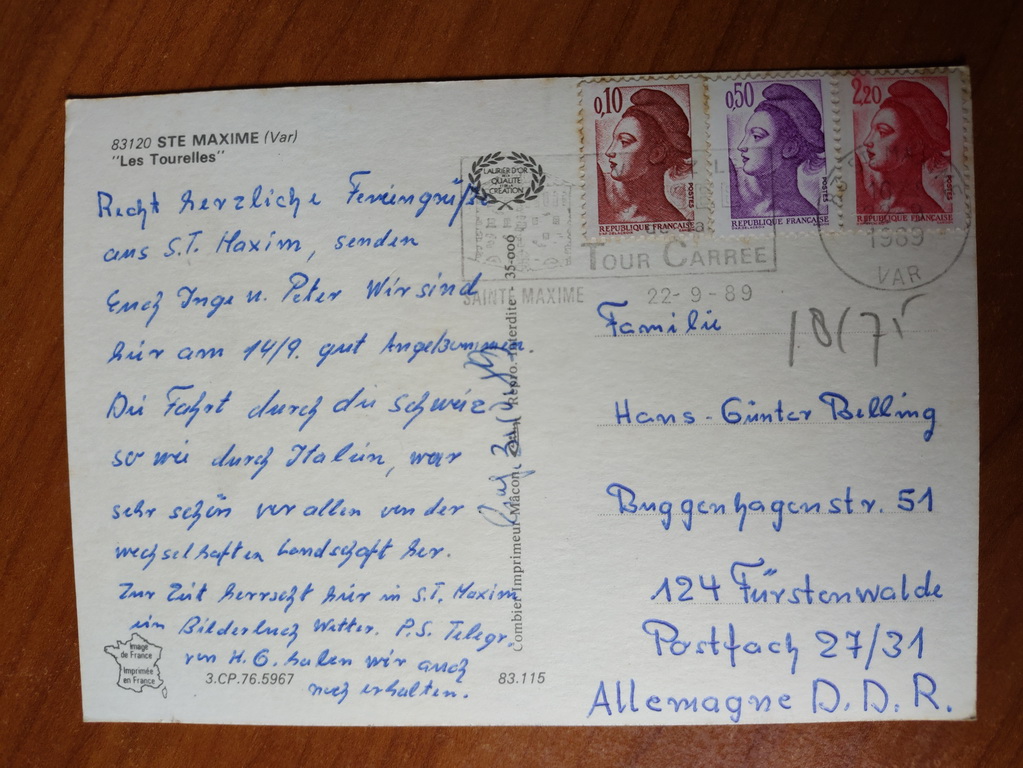 83120 STE MAXIME (Var)
"Les Tourelles"
Recht herzliche Feriengrüße
aus S.T. Maxim, senden
Euch Inge u. Peter Wir sind
hier am 14/9. gut Angekommen.
Die Fahrt durch die Schweiz
so wie durch Italien, war
sehr schön vor allen von der
wechselhaften Landschaft her.
Zur Zeit herrscht hier in S.T. Maxim
ein Bilderbuch Wetter. P.S. Telegr.
von H.G. haben wir auch
noch erhalten.
Image
de France
Imprimée
en France
3.CP.76.5967
83.115
LAURIER D'OR
DE LA
QUALITÉ
CRÉATION
Combier Imprimeur Mâcon
Repro. Interdite
35-000
0,10
POSTES
REPUBLIQUE FRANÇAISE
0,50
POSTES
REPUBLIQUE FRANÇAISE
2,20
POSTES
REPUBLIQUE FRANÇAISE
TOUR CARREE
SAINTE MAXIME
22-9-89
1989
VAR
18/75
Familie
Hans-Günter Belling
Buggenhagenstr. 51
124 Fürstenwalde
Postfach 27/31
Allemagne D.D.R.